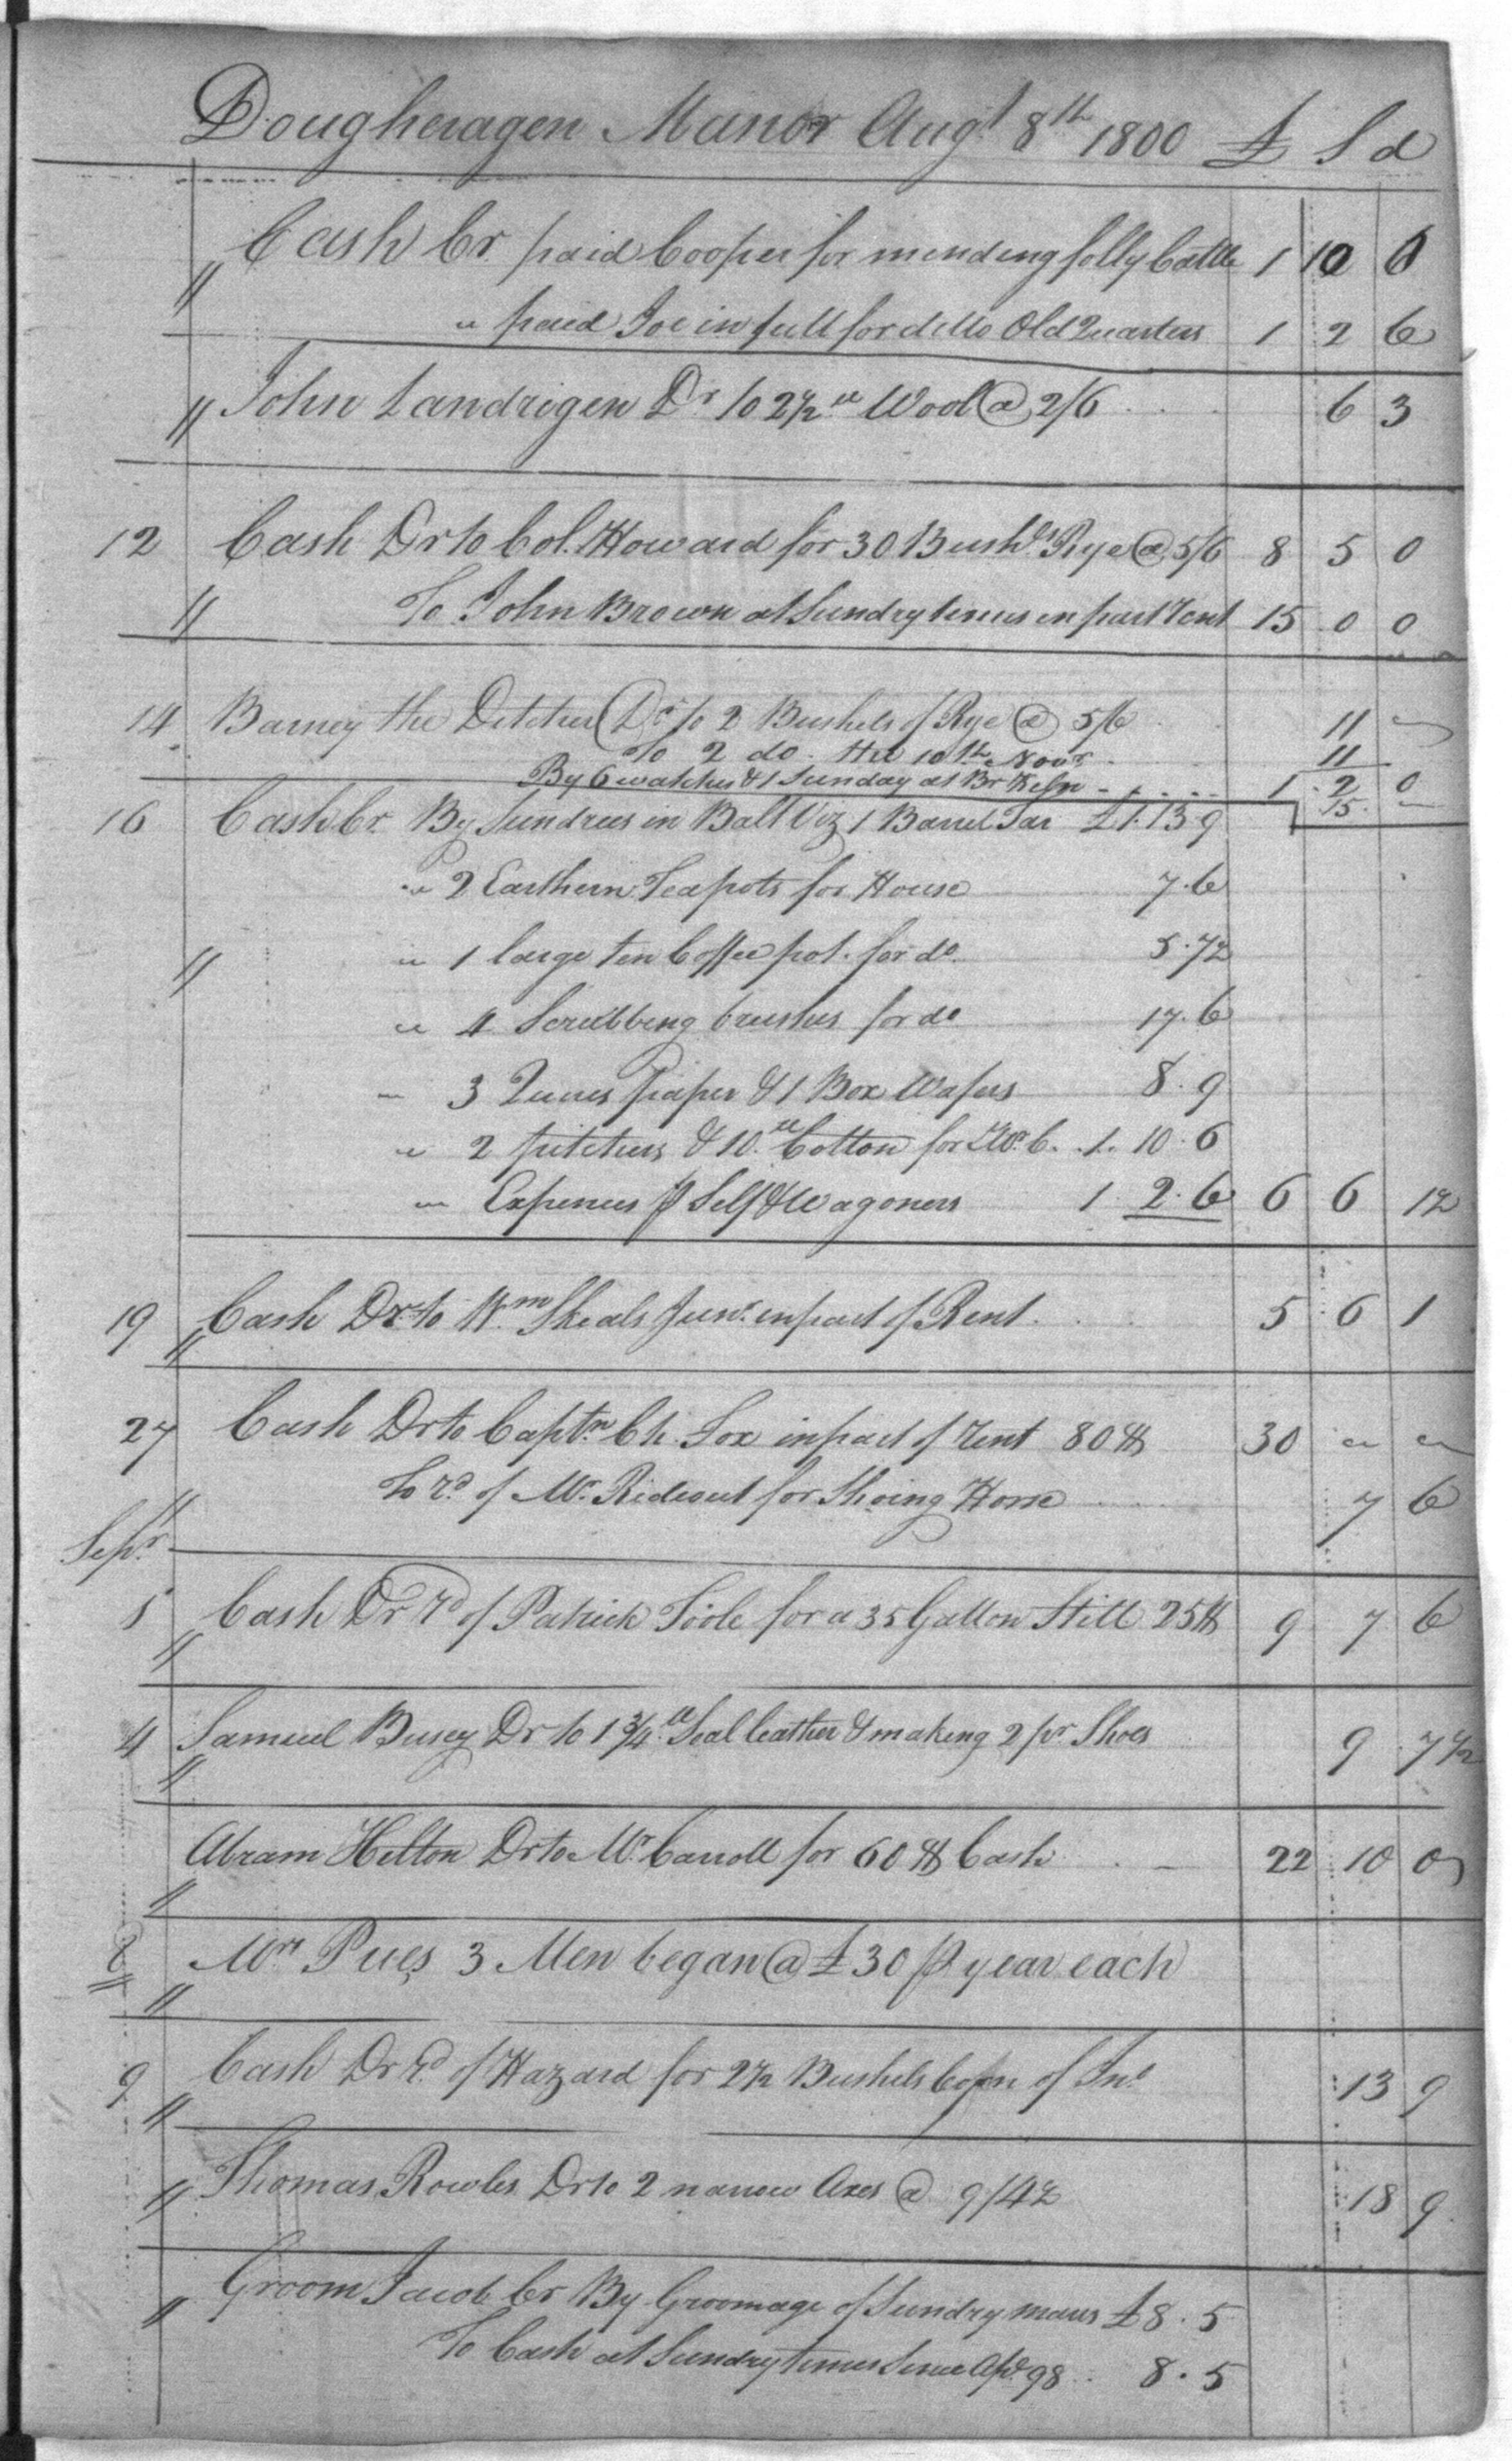 Dougheragen Manor Augt 8th 1800 £ S d
" Cash Cr. paid Cooper for mending folly Cattle 1 10 0
" paid Joe in full for ditto Old Quarters 1 2 6
" John Landrigen Dr to 2 1/2 lb Wool @ 2/6 6 3
12 Cash Dr to Col. Howard for 30 Bushls Rye @ 5/6 8 5 0
" To John Brown at Sundry times in part rent 15 0 0
14 Barney the Ditcher Dr to 2 Bushels of Rye @ 5/6 11 "
To 2 do. the 10th Novr. 11
1 2 0
By 6 watches & 1 Sunday at Br Keln 15. "
16 Cash Cr. By Sundrees in Balt Viz 1 Barrel Tar £1.13.9
" 2 Earthern Teapots for House 7.6
" " 1 large ten Coffee pot. for do. 5.7 1/2
" 4 Scrubbing brushes for do 17.6
" 3 Quires paper & 1 Box Wafers 8.9
" 2 pitchers & 10 lb Cotton for Mr. C. 1. 10. 6
" Expences p Self & Wagoners 1 2.6 6 6 1 1/2
19 " Cash Dr to Wm. Sheals Junr. in part of Rent 5 6 1
27 Cash Dr to Captn Ch. Fox in part of rent 80 $ 30 " "
" To rd of Mr. Rideout for Shoing Horse 7 6
Sepr.
1 " Cash Dr rd of Patrick Toole for a 35 Gallon Still 25 $ 9 7 6
4 " Samuel Busey Dr to 1 3/4 lb Seal leather & making 2 pr Shoes 9 7 1/2
" Abram Helton Dr to Mr. Carroll for 60 $ Cash 22 10 0
8 " Mrs Pues 3 Men began @ £30 p year each
9 " Cash Dr rd. of Hazard for 2 1/2 Bushels Corn of Jno. 13 9
" Thomas Rowles Dr to 2 narrow Axes @ 9/4 1/2 18 9
" Groom Jacob Cr By Groomage of Sundry mares £8.5
To Cash at Sundry times Since Apl. 98 8.5